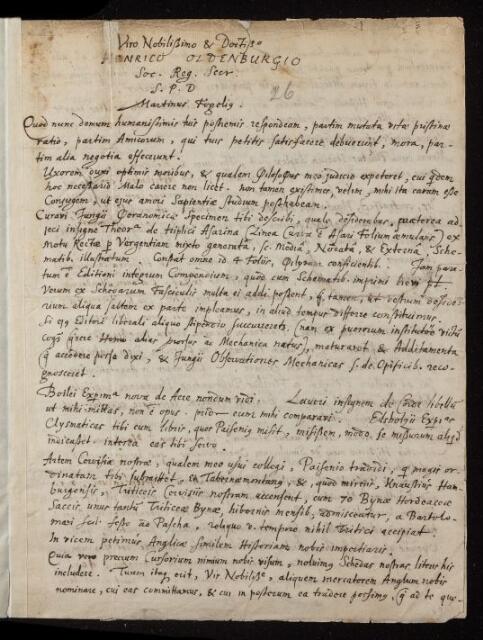 Viro Nobilissimo & Doctiss.o
HENRICO OLDENBURGIO
Soc. Reg. Secr.
S. P. D
Martinus Fogelig.
26
Quod nunc demum humanissimis tuis postremis respondeam, partim mutata vitæ pristinæ
ratio, partim Amicorum, qui tuis petitis satisfacere debuerunt, mora, par-
tim alia negotia effecerunt.
Uxorem duxi optimis moribus, & qualem Philosophus meo judicio expeteret, cui quidem
hoc necessario Malo carere non licet. non tamen existimes, velim, mihi ita caram esse
Conjugem, ut ejus amori Sapientiæ studium posthabeam.
Curavi Jungii Phoranomicæ Specimen tibi describi, quale desiderabas, cæterea ad
jeci insigne de triplici Asarina (Linea Curva è Asari Folium æmulans) ex
Motu Recta p Vergentiam mixto generata, sc. Media, & Externa Sche-
matib. illustratum. Constat omne id 4 Foliis, conficientib. Jam para-
tum è Editioni integrum Compendium, quod cum Schematib. imprimi brevi pt
Verum ex Schedarum Fasciculis multa ei addi possent, q tamen, ut vestrum
rium aliqua saltem ex parte impleamus, in aliud tempus differre constituimus.
Si qs Editori liberali aliquo stipendio succurreret, (nam ex puerorum institutione victum
cogit quærere alias prorsus ad Mechanica natus), maturaret & Additamenta
q accedere posse dixi, & Jungii Observationes Mechanicas s. de Opificib. reco-
gnosceret.
Boilei Experim.a nova de Aere nondum vidi. Laueri insignem de libellum
ut mihi mittas, non è opus. cum mihi comparavi. Elsholtii Exper
Clysmaticas tibi cum libris, quos Paisenig misit, misissem, modo te missurum
indicasset. interea eas tibi servo.
Artem Cervisiæ nostræ, qualem meo usui collegi, Paisenio tradidi, q magis or
dinatam tibi submittet. In Tabernæmontang, &, quod mireris, Knaustius Ham
burgensis, Triticeis Cervisiis nostram accensent, cum 70 Bynæ Hordeaceæ
Saccis, unus tantum Triticeæ Bynæ, hibernis mensib. admisceatur, a Bartolo-
mæi scil. festo ad Pascha, reliquo v. tempore nihil Tritici accipiat
In vicem petimus Anglicæ similem Historiam nobis impertiaris.
Quia vero precium Cursorium nimium nobis visum, noluimus Schedas nostras literis his
includere. Tuum itaq erit, Vir Nobiliss.e, aliquem mercatorem Anglum nobis
nominare, cui eas committamus, & cui in posterum ea tradere possimus, q ad te que-